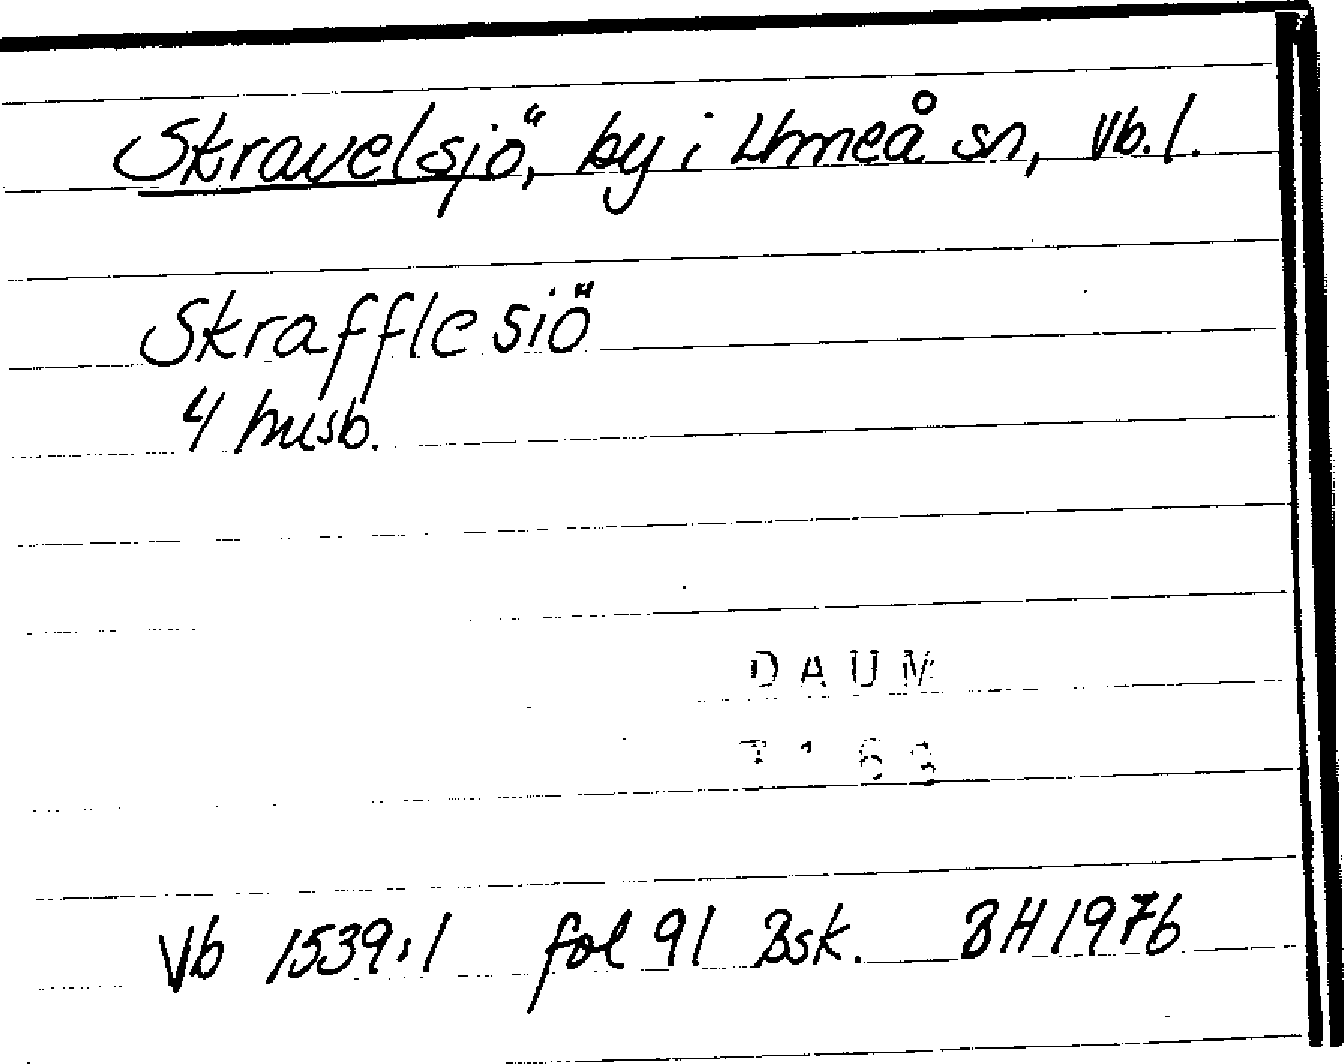 Skravelsjö, by i Umeå sn, Vb.l.
Skrafflesiö
4 husb.
DAUM
Vb 1539:1 fol 91 Bsk. BH 1976